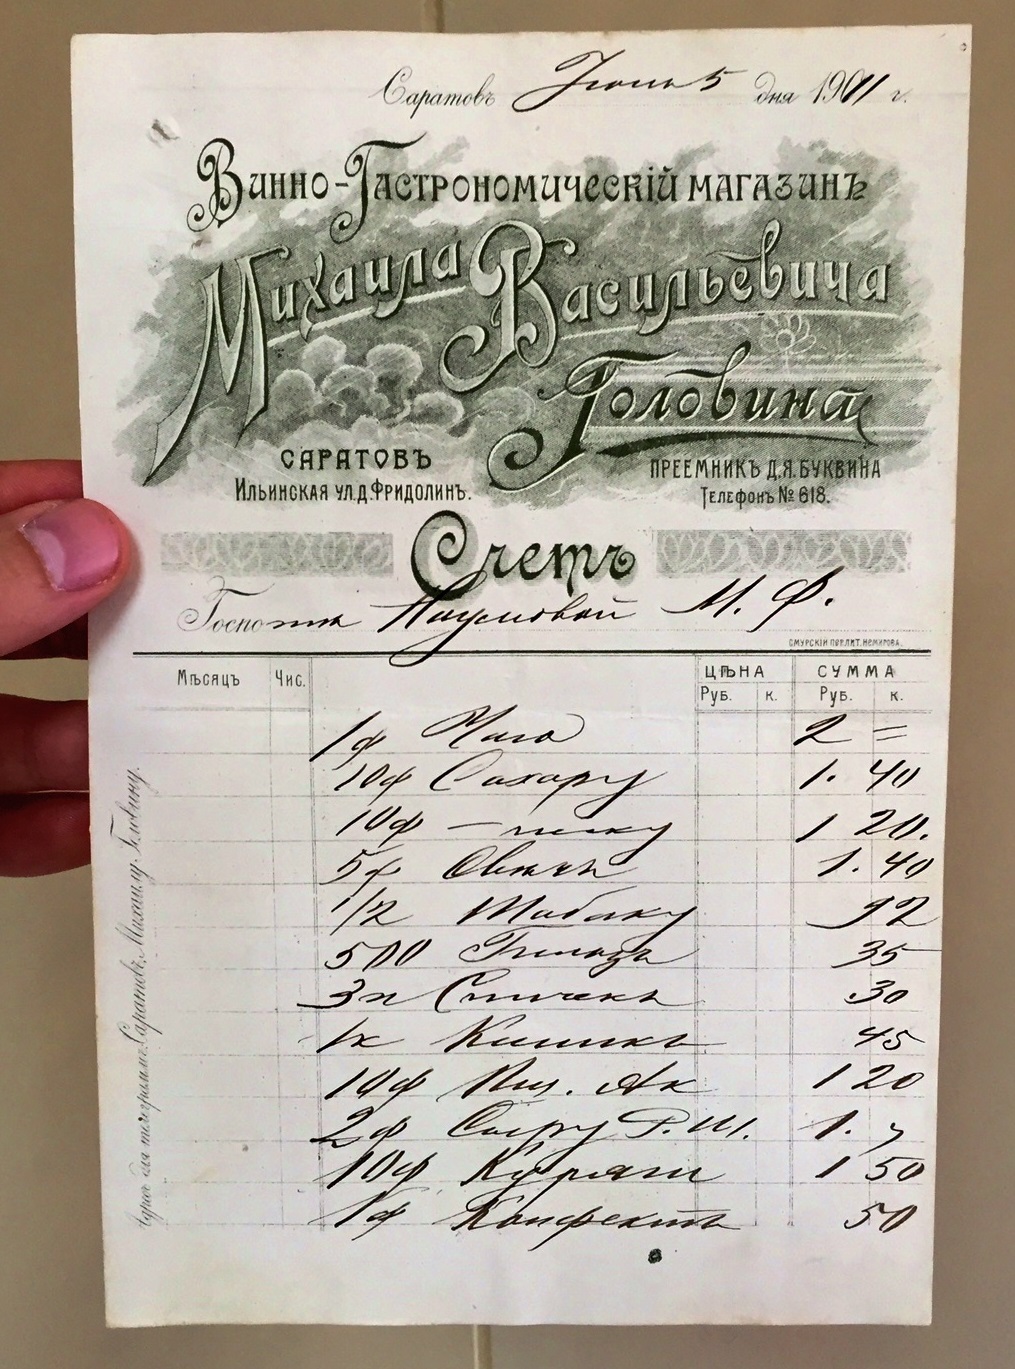 Саратовъ Июнь 5 дня 1901 г.
Винно-Гастрономическій магазинъ
Михаила Васильевича
Головина
САРАТОВЪ
Ильинская ул.д.Фридолинъ.
ПРЕЕМНИКЪ Д.Я.БУКВИНА
Телефонъ № 618.
Счетъ
Госпожа Наумовой М. Ф.
Мѣсяцъ Чис. ЦѢНА СУММА
Руб. к. Руб. к.
1ф Чаю 2 =
10ф Сахару 1. 40
10ф — песку 1 20.
5ф 1. 40
1/2 Табаку 92
500 Гильзъ 35
3п Спичекъ 30
1к 45
10ф 1 20
2ф Сыру Р. Ш. 1.
10ф 1 50
1ф Конфектъ 50
Адресъ для телеграммъ: Саратовъ, Михаилу Головину.